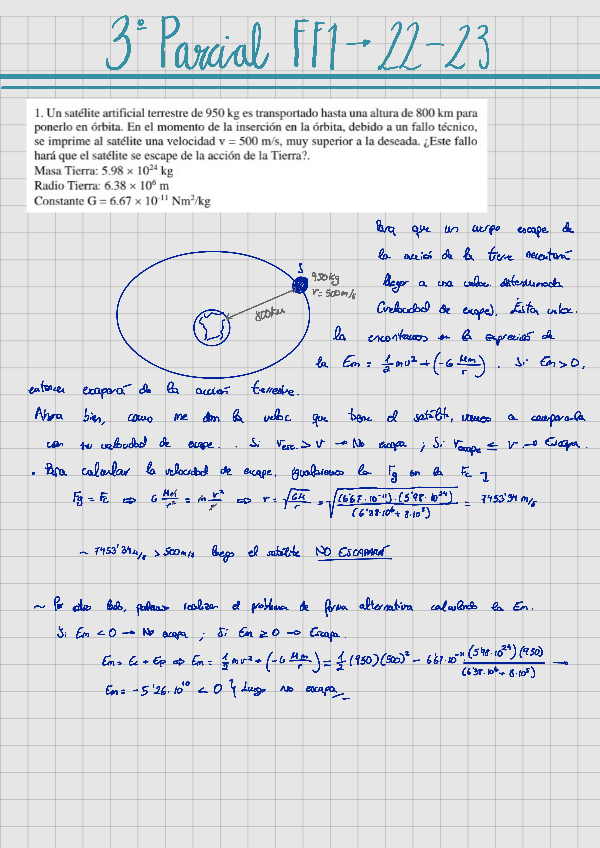 3º Parcial FF1 → 22-23
1. Un satélite artificial terrestre de 950 kg es transportado hasta una altura de 800 km para
ponerlo en órbita. En el momento de la inserción en la órbita, debido a un fallo técnico,
se imprime al satélite una velocidad v = 500 m/s, muy superior a la deseada. ¿Este fallo
hará que el satélite se escape de la acción de la Tierra?.
Masa Tierra: 5.98 × 10²⁴ kg
Radio Tierra: 6.38 × 10⁶ m
Constante G = 6.67 × 10⁻¹¹ Nm²/kg
Para que un cuerpo escape de
la acción de la tierra necesitará
llegar a una veloc. determinada
(velocidad de escape). Ésta veloc.
la encontramos en la expresión de
la Em = 1/2 mv² + (-G Mm/r) . Si Em > 0,
S
950kg
v = 500m/s
800km
entonces escapará de la acción terrestre.
Ahora bien, como me dan la veloc que tiene el satélite, vamos a compararla
con su velocidad de escape. . Si Vesc. > V → No escapa ; Si Vescape ≤ V → Escapa.
. Para calcular la velocidad de escape, igualaremos la Fg con la Fc
Fg = Fc ⇒ G Mm/r² = m v²/r ⇒ v = √(GM/r) = √((6'67·10⁻¹¹)·(5'98·10²⁴)/(6'38·10⁶ + 8·10⁵)) = 7453'34 m/s
~ 7453'34 m/s > 500 m/s luego el satélite NO ESCAPARÁ
~ Por otro lado, podemos realizar el problema de forma alternativa calculando la Em.
Si Em < 0 → No escapa ; Si Em ≥ 0 → Escapa.
Em = Ec + Ep ⇒ Em = 1/2 mv² + (-G Mm/r) = 1/2 (950)(500)² - 6'67·10⁻¹¹ (5'98·10²⁴)(950)/(6'38·10⁶ + 8·10⁵) →
Em = -5'26·10¹⁰ < 0 } Luego no escapa